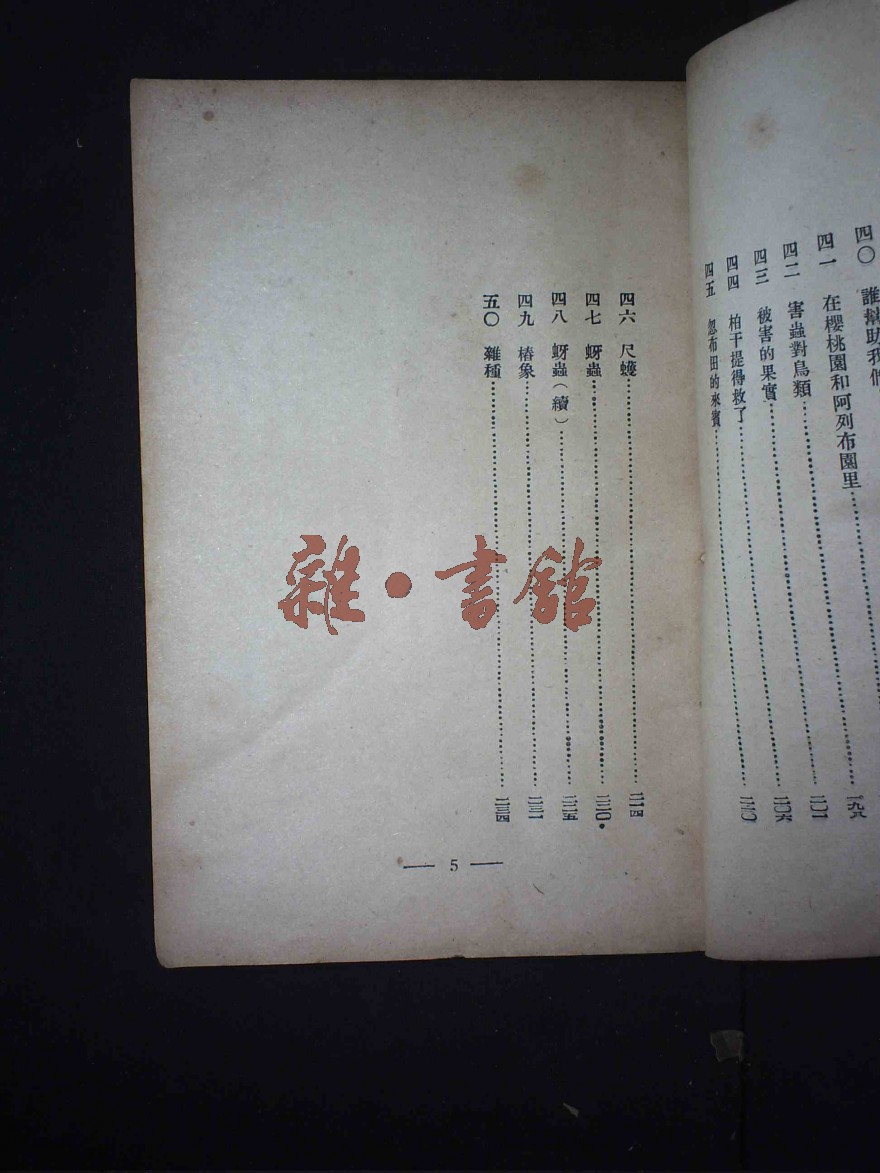 四〇 誰幫助我們
四一 在櫻桃園和阿列布園里……一九八
四二 害蟲對鳥類……二〇一
四三 被害的果實……二〇六
四四 柏干提得救了……二一〇
四五 忽布田的來賓……
四六 尺蠖……二一四
四七 蚜蟲……二二〇
四八 蚜蟲(續)……二二五
四九 椿象……二三一
五〇 雜種……二三四
— 5 —
雜·書館